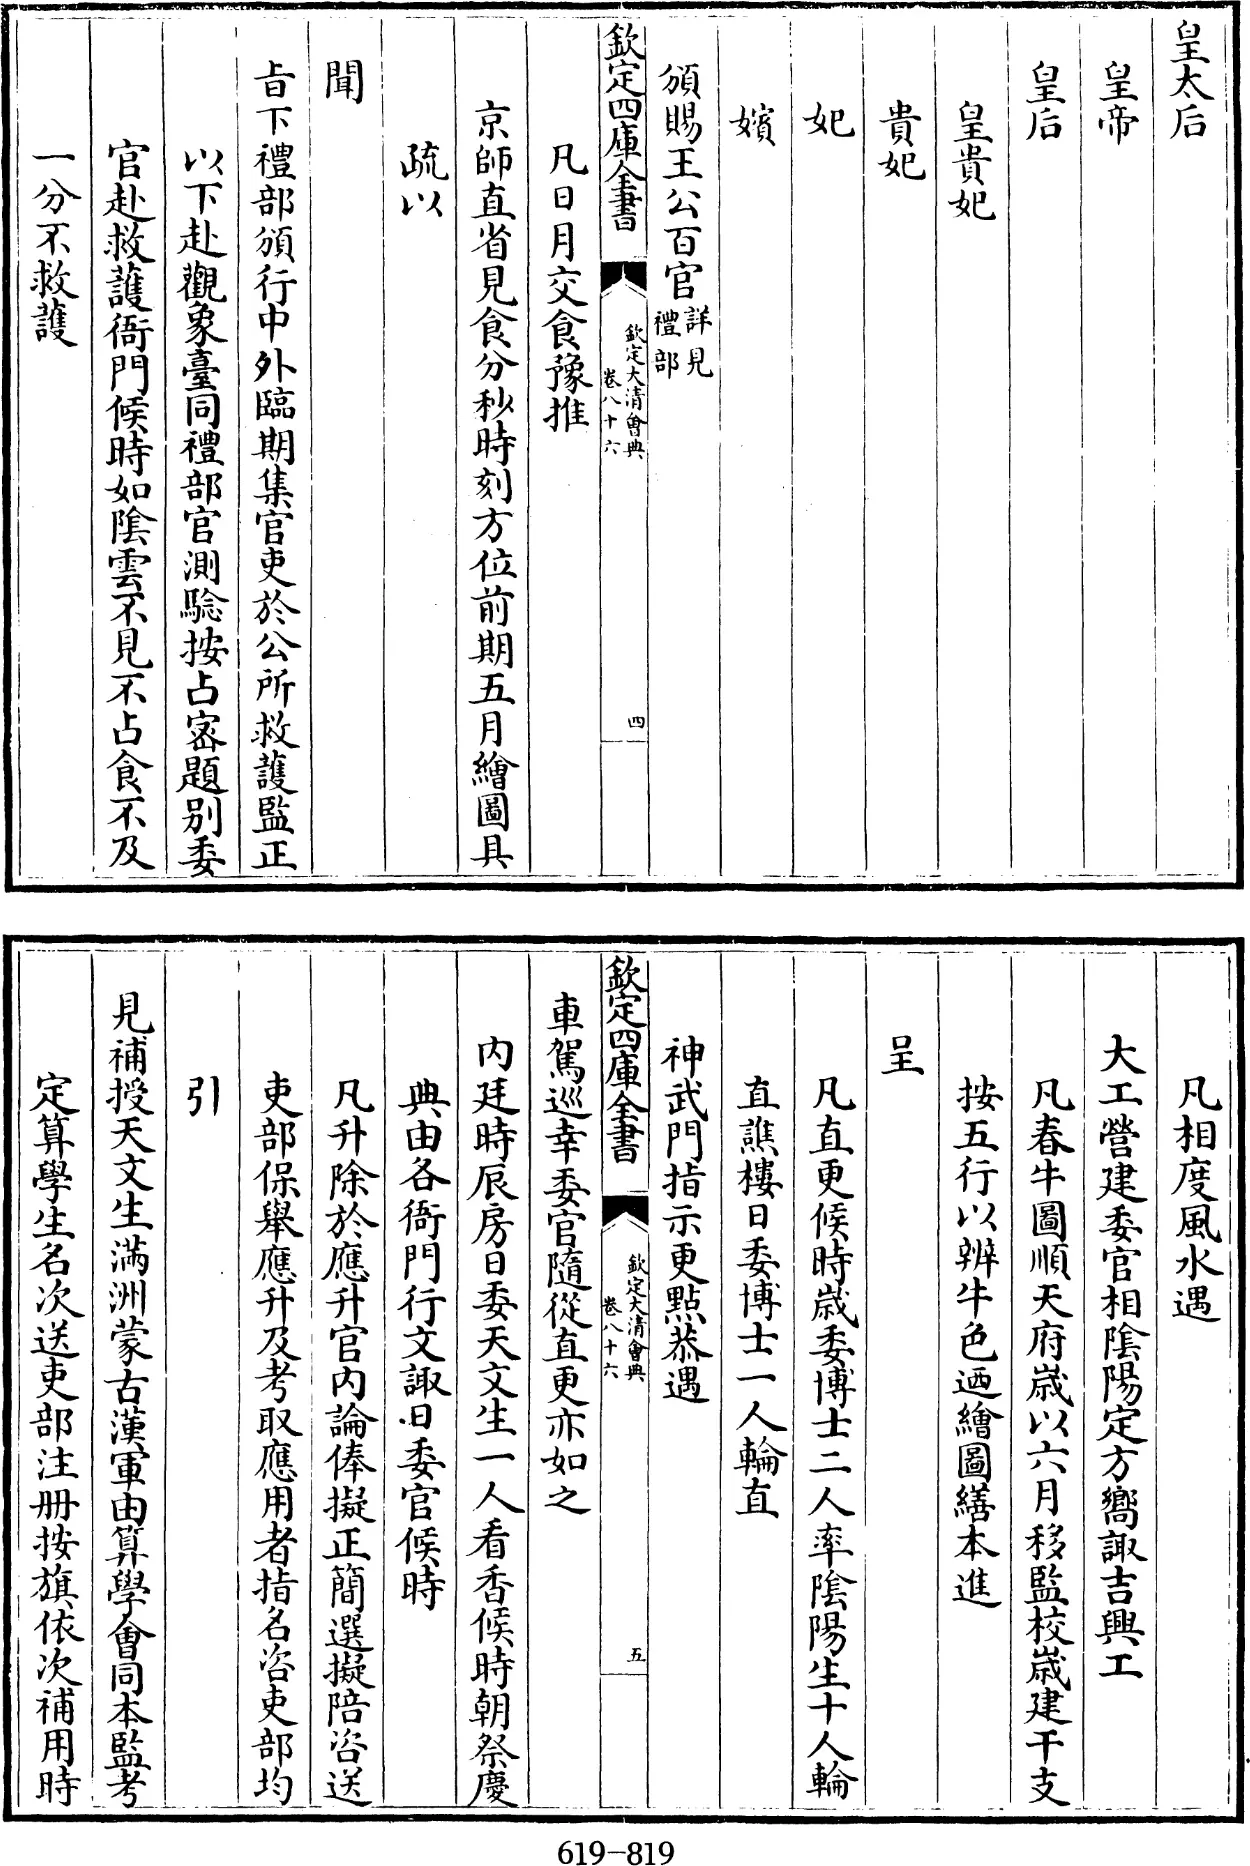 皇太后
皇帝
皇后
皇貴妃
貴妃
妃
嬪
頒賜王公百官詳見禮部
欽定四庫全書
欽定大清會典
卷八十六
四
凡日月交食豫推
京師直省見食分秒時刻方位前期五月繪圖具
疏以
聞
旨下禮部頒行中外臨期集官吏於公所救護監正
以下赴觀象臺同禮部官測驗按占密題別委
官赴救護衙門候時如陰雲不見不占食不及
一分不救護
凡相度風水遇
大工營建委官相陰陽定方嚮諏吉興工
凡春牛圖順天府歲以六月移監校歲建干支
按五行以辨牛色迺繪圖繕本進
呈
凡直更候時歲委博士二人率陰陽生十人輪
直譙樓日委博士一人輪直
神武門指示更點恭遇
欽定四庫全書
欽定大清會典
卷八十六
五
車駕巡幸委官隨從直更亦如之
內廷時辰房日委天文生一人看香候時朝祭慶
典由各衙門行文諏日委官候時
凡升除於應升官內論俸擬正簡選擬陪咨送
吏部保舉應升及考取應用者指名咨吏部均
引
見補授天文生滿洲蒙古漢軍由算學會同本監考
定算學生名次送吏部注冊按旗依次補用時
619-819